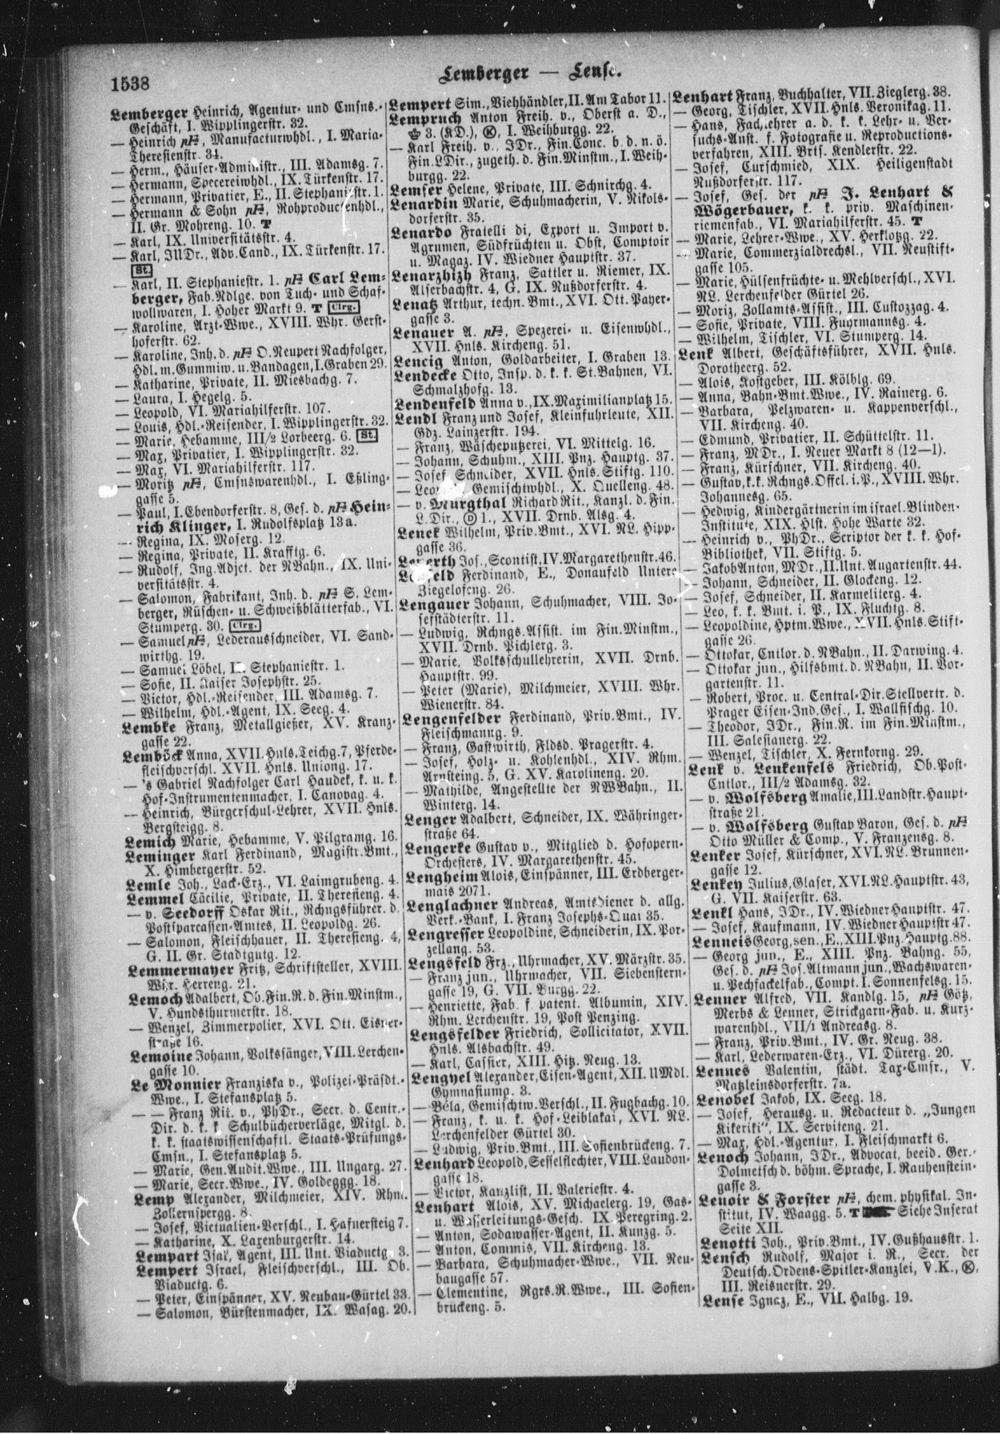 1538
Lemberger — Lense.
Lemberger Heinrich, Agentur- und Cmsns.-
Geschäft, I. Wipplingerstr. 32.
— Heinrich, Manufacturwhdl., I. Maria-
Theresienstr. 34.
— Herm., Häuser-Administr., III. Adamsg. 7.
— Hermann, Specereiwhdl., IX. Türkenstr. 17.
— Hermann, Privatier, E., II. Stephaniestr. 1.
— Hermann & Sohn, Rohproductenhdl.,
II. Gr. Mohreng. 10. T
— Karl, IX. Universitätsstr. 4.
— Karl, JUDr., Adv.Cand., IX. Türkenstr. 17.
St.
— Karl, II. Stephaniestr. 1. Carl Lem-
berger, Fab.Ndlge. von Tuch- und Schaf-
wollwaren, I. Hoher Markt 9. T Clrg.
— Karoline, Arzt-Wwe., XVIII. Whr. Gerst-
hoferstr. 62.
— Karoline, Inh. d. O. Neupert Nachfolger,
Hdl. m. Gummiw. u. Bandagen, I. Graben 29.
— Katharine, Private, II. Miesbachg. 7.
— Laura, I. Hegelg. 5.
— Leopold, VI. Mariahilferstr. 107.
— Louis, Hdl.-Reisender, I. Wipplingerstr. 32.
— Marie, Hebamme, III/2 Lorbeerg. 6. St.
— Max, Privatier, I. Wipplingerstr. 32.
— Max, VI. Mariahilferstr. 117.
— Moritz, Cmsnswarenhdl., I. Eßling-
gasse 5.
— Paul, I. Ebendorferstr. 8, Ges. d. Hein-
rich Klinger, I. Rudolfsplatz 13a.
— Regina, IX. Moserg. 12.
— Regina, Private, II. Krafftg. 6.
— Rudolf, Ing. Adjct. der NBahn., IX. Uni-
versitätsstr. 4.
— Salomon, Fabrikant, Inh. d. S. Lem-
berger, Rüschen- u. Schweißblätterfab., VI.
Stumperg. 30. Clrg.
— Samuel, Lederausschneider, VI. Sand-
wirthg. 19.
— Samuel Löbel, Stephaniestr. 1.
— Sofie, II. Kaiser Josephstr. 25.
— Victor, Hdl.-Reisender, III. Adamsg. 7.
— Wilhelm, Hdl.-Agent, IX. Seeg. 4.
Lembke Franz, Metallgießer, XV. Kranz-
gasse 22.
Lemböck Anna, XVII. Hnls. Teichg. 7, Pferde-
fleischverschl. XVII. Hnls. Uniong. 17.
— 's Gabriel Nachfolger Carl Haudek, k. u. k.
Hof-Instrumentenmacher, I. Canovag. 4.
— Heinrich, Bürgerschul-Lehrer, XVII. Hnls.
Bergsteigg. 8.
Lemich Marie, Hebamme, V. Pilgramg. 16.
Leminger Karl Ferdinand, Magistr.Bmt.,
X. Himbergerstr. 52.
Lemle Joh., Lack-Erz., VI. Laimgrubeng. 4.
Lemmel Cäcilie, Private, II. Theresieng. 4.
— v. Seedorff Oskar Rit., Rchngsführer. d.
Postsparcassen-Amtes, II. Leopoldg. 26.
— Salomon, Fleischhauer, II. Theresieng. 4,
G. II. Gr. Stadtgutg. 12.
Lemmermayer Fritz, Schriftsteller, XVIII.
Whr. Herreng. 21.
Lemoch Adalbert, Ob.Fin.R. d. Fin.Minstm.,
V. Hundsthurmerstr. 18.
— Wenzel, Zimmerpolier, XVI. Ott. Eisner-
straße 16.
Lemoine Johann, Volkssänger, VIII. Lerchen-
gasse 10.
Le Monnier Franziska v., Polizei-Präsdt.-
Wwe., I. Stefansplatz 5.
— — Franz Rit. v., PhDr., Secr. d. Centr.-
Dir. d. k. k. Schulbücherverläge, Mitgl. d.
k. k. staatswissenschaftl. Staats-Prüfungs-
Cmsn., I. Stefansplatz 5.
— Marie, Gen.Audit.Wwe., III. Ungarg. 27.
— Marie, Secr.Wwe., IV. Goldeggg. 18.
Lemp Alexander, Milchmeier, XIV. Rhm.
Zollernspergg. 8.
— Josef, Victualien-Verschl., I. Hafnersteig 7.
— Katharine, X. Laxenburgerstr. 14.
Lempart Isak, Agent, III. Unt. Viaductg. 3.
Lempert Israel, Fleischverschl., III. Ob.
Viaductg. 6.
— Peter, Einspänner, XV. Neubau-Gürtel 33.
— Salomon, Bürstenmacher, IX. Wasag. 20.
Lempert Sim., Viehhändler, II. Am Tabor 11.
Lempruch Anton Freih. v., Oberst a. D.,
3. (KD.), I. Weihburgg. 22.
— Karl Freih. v., JDr., Fin.Conc. b. d. n. ö.
Fin.LDir., zugeth. d. Fin.Minstm., I. Weih-
burgg. 22.
Lemser Helene, Private, III. Schnirchg. 4.
Lenardin Marie, Schuhmacherin, V. Nikols-
dorferstr. 35.
Lenardo Fratelli di, Export u. Import v.
Agrumen, Südfrüchten u. Obst, Comptoir
u. Magaz. IV. Wiedner Hauptstr. 37.
Lenarzhizh Franz, Sattler u. Riemer, IX.
Alserbachstr. 4, G. IX. Nußdorferstr. 4.
Lenatz Arthur, techn. Bmt., XVI. Ott. Payer-
gasse 3.
Lenauer A., Spezerei- u. Eisenwhdl.,
XVII. Hnls. Kircheng. 51.
Lencig Anton, Goldarbeiter, I. Graben 13.
Lendecke Otto, Insp. d. k. k. St.Bahnen, VI.
Schmalzhofg. 13.
Lendenfeld Anna v., IX. Maximilianplatz 15.
Lendl Franz und Josef, Kleinfuhrleute, XII.
Gdz. Lainzerstr. 194.
— Franz, Wäscheputzerei, VI. Mittelg. 16.
— Johann, Schuhm., XIII. Pnz. Hauptg. 37.
— Josef, Schneider, XVII. Hnls. Stiftg. 110.
— Gemischtwhdl., X. Quelleng. 48.
— v. Murgthal Richard Rit., Kanzl. d. Fin.
L.Dir., 1., XVII. Drnb. Alsg. 4.
Lenek Wilhelm, Priv.Bmt., XVI. NL. Hipp-
gasse 36.
Jos., Scontist, IV. Margarethenstr. 46.
Ferdinand, E., Donaufeld Untere
Ziegelofeng. 26.
Lengauer Johann, Schuhmacher, VIII. Jo-
sefstädterstr. 11.
— Ludwig, Rchngs.Assist. im Fin.Minstm.,
XVII. Drnb. Pichlerg. 3.
— Marie, Volksschullehrerin, XVII. Drnb.
Hauptstr. 99.
— Peter (Marie), Milchmeier, XVIII. Whr.
Wienerstr. 84.
Lengenfelder Ferdinand, Priv.Bmt., IV.
Fleischmanng. 9.
— Franz, Gastwirth, Fldsd. Pragerstr. 4.
— Josef, Holz- u. Kohlenhdl., XIV. Rhm.
Arnsteing. 5, G. XV. Karolineng. 20.
— Mathilde, Angestellte der NWBahn., II.
Winterg. 14.
Lenger Adalbert, Schneider, IX. Währinger-
straße 64.
Lengerke Gustav v., Mitglied d. Hofopern-
Orchesters, IV. Margarethenstr. 45.
Lengheim Alois, Einspänner, III. Erdberger-
mais 2071.
Lenglachner Andreas, Amtsdiener d. allg.
Verk.-Bank, I. Franz Josephs-Quai 35.
Lengresser Leopoldine, Schneiderin, IX. Por-
zellang. 53.
Lengsfeld Frz., Uhrmacher, XV. Märzstr. 35.
— Franz jun., Uhrmacher, VII. Siebenstern-
gasse 19, G. VII. Burgg. 22.
— Henriette, Fab. f. patent. Albumin, XIV.
Rhm. Lerchenstr. 19, Post Penzing.
Lengsfelder Friedrich, Sollicitator, XVII.
Hnls. Alsbachstr. 49.
— Karl, Cassier, XIII. Hitz. Neug. 13.
Lengyel Alexander, Eisen-Agent, XII. UMdl.
Gymnasiumg. 3.
— Béla, Gemischtw.Verschl., II. Fugbachg. 10.
— Franz, k. u. k. Hof-Leiblakai, XVI. NL.
Lerchenfelder Gürtel 30.
— Ludwig, Priv.Bmt., III. Sofienbrückeng. 7.
Lenhard Leopold, Sesselflechter, VIII. Laudon-
gasse 18.
— Victor, Kanzlist, II. Valeriestr. 4.
Lenhart Alois, XV. Michaelerg. 19, Gas-
u. Wasserleitungs-Gesch. IX. Peregring. 2.
— Anton, Sodawasser-Agent, II. Kunzg. 5.
— Anton, Commis, VII. Kircheng. 13.
— Barbara, Schuhmacher-Wwe., VII. Neu-
baugasse 57.
— Clementine, Rgrs.R.Wwe., III. Sofien-
brückeng. 5.
Lenhart Franz, Buchhalter, VII. Zieglerg. 38.
— Georg, Tischler, XVII. Hnls. Veronikag. 11.
— Hans, Fachlehrer a. d. k. k. Lehr- u. Ver-
suchs-Anst. f. Fotografie u. Reproductions-
verfahren, XIII. Brts. Kendlerstr. 22.
— Josef, Curschmied, XIX. Heiligenstadt
Nußdorferstr. 117.
— Josef, Ges. der J. Lenhart &
Wögerbauer, k. k. priv. Maschinen-
riemenfab., VI. Mariahilferstr. 45. T
— Marie, Lehrer-Wwe., XV. Herklotzg. 22.
— Marie, Commercialrechsl., VII. Neustift-
gasse 105.
— Marie, Hülsenfrüchte- u. Mehlverschl., XVI.
NL. Lerchenfelder Gürtel 26.
— Moriz, Zollamts-Assist., III. Custozzag. 4.
— Sofie, Private, VIII. Fuhrmannsg. 4.
— Wilhelm, Tischler, VI. Stumperg. 14.
Lenk Albert, Geschäftsführer, XVII. Hnls.
Dorotheerg. 52.
— Alois, Kostgeber, III. Kölblg. 69.
— Anna, Bahn-Bmt.Wwe., IV. Rainerg. 6.
— Barbara, Pelzwaren- u. Kappenverschl.,
VII. Kircheng. 40.
— Edmund, Privatier, II. Schüttelstr. 11.
— Franz, MDr., I. Neuer Markt 8 (12—1).
— Franz, Kürschner, VII. Kircheng. 40.
— Gustav, k. k. Rchngs.Offcl. i. P., XVIII. Whr.
Johannesg. 65.
— Hedwig, Kindergärtnerin im israel. Blinden-
Institute, XIX. Hlst. Hohe Warte 32.
— Heinrich v., PhDr., Scriptor der k. k. Hof-
Bibliothek, VII. Stiftg. 5.
— Jakob Anton, MDr., II. Unt. Augartenstr. 44.
— Johann, Schneider, II. Glockeng. 12.
— Josef, Schneider, II. Karmeliterg. 4.
— Leo, k. k. Bmt. i. P., IX. Fluchtg. 8.
— Leopoldine, Hptm.Wwe., XVII. Hnls. Stift-
gasse 26.
— Ottokar, Cntlor. d. NBahn., II. Darwing. 4.
— Ottokar jun., Hilfsbmt. d. NBahn, II. Vor-
gartenstr. 11.
— Robert, Proc. u. Central-Dir.Stellvertr. d.
Prager Eisen-Ind.Ges., I. Wallfischg. 10.
— Theodor, JDr., Fin.R. im Fin.Minstm.,
III. Salesianerg. 22.
— Wenzel, Tischler, X. Fernkorng. 29.
Lenk v. Lenkenfels Friedrich, Ob.Post-
Cntlor., III/2 Adamsg. 32.
— v. Wolfsberg Amalie, III. Landstr. Haupt-
straße 21.
— v. Wolfsberg Gustav Baron, Ges. d.
Otto Müller & Comp., V. Franzensg. 8.
Lenker Josef, Kürschner, XVI. NL. Brunnen-
gasse 12.
Lenkey Julius, Glaser, XVI. NL. Hauptstr. 43,
G. VII. Kaiserstr. 63.
Lenkl Hans, JDr., IV. Wiedner Hauptstr. 47.
— Josef, Kaufmann, IV. Wiedner Hauptstr. 47.
Lenneis Georg, sen., E., XIII. Pnz. Hauptg. 88.
— Georg jun., E., XIII. Pnz. Bahng. 55,
Ges. d. Jos. Altmann jun., Wachswaren-
u. Pechfackelfab., Compt. I. Sonnenfelsg. 15.
Lenner Alfred, VII. Kandlg. 15, Götz,
Merbs & Lenner, Strickgarn-Fab. u. Kurz-
warenhdl., VII/1 Andreasg. 8.
— Franz, Priv.Bmt., IV. Gr. Neug. 38.
— Karl, Lederwaren-Erz., VI. Dürerg. 20.
Lennes Valentin, städt. Tax-Cmsr., V.
Matzleinsdorferstr. 7a.
Lenobel Jakob, IX. Seeg. 18.
— Josef, Herausg. u. Redacteur d. „Jungen
Kikeriki“, IX. Serviteng. 21.
— Max, Hdl.-Agentur, I. Fleischmarkt 6.
Lenoch Johann, JDr., Advocat, beeid. Ger.-
Dolmetsch d. böhm. Sprache, I. Rauhenstein-
gasse 3.
Lenoir & Forster, chem. physikal. In-
stitut, IV. Waagg. 5. T Siehe Inserat
Seite XII.
Lenotti Joh., Priv.Bmt., IV. Gußhausstr. 1.
Lensch Rudolf, Major i. R., Secr. der
Deutsch.Ordens-Spitler-Kanzlei, V.K.,
III. Reisnerstr. 29.
Lense Ignaz, E., VII. Halbg. 19.